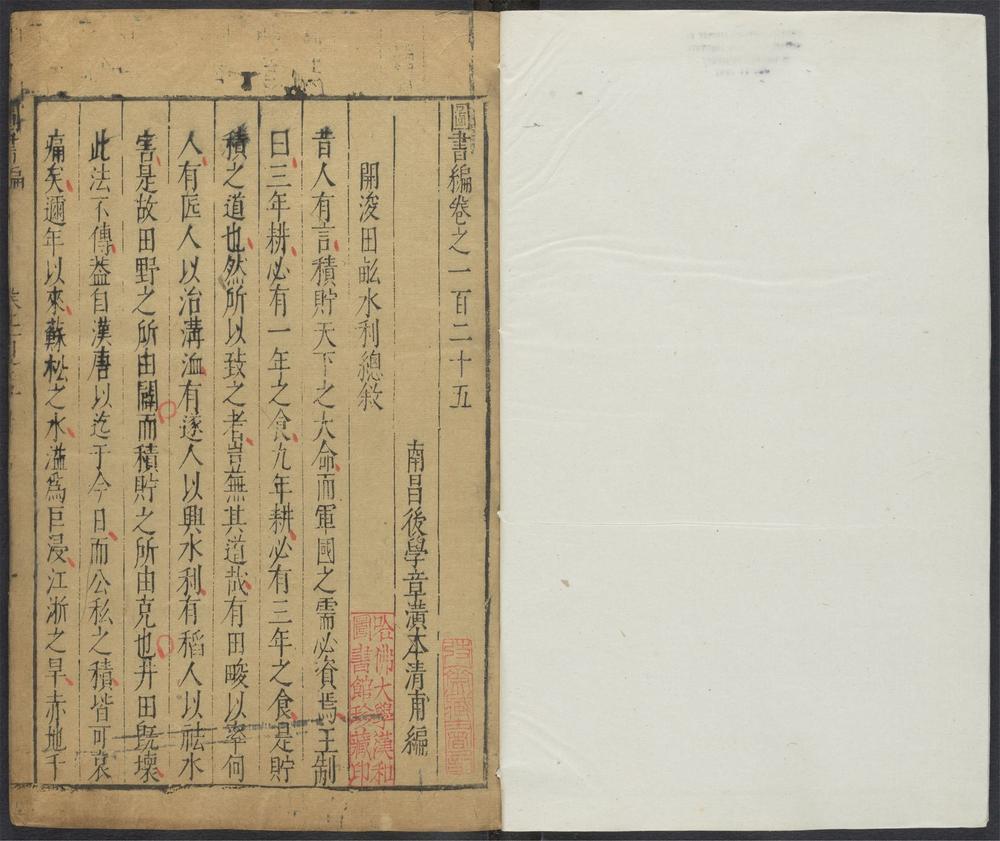 圖書編卷之一百二十五
南昌後學章潢本清甫編
開浚田畆水利總敘
昔人有言積貯天下之大命而軍國之需必資焉王制
曰三年耕必有一年之食九年耕必有三年之食是貯
積之道也然所以致之者豈無其道哉有田畯以率何
人有匠人以治溝洫有遂人以興水利有稻人以祛水
害是故田野之所由闢而積貯之所由克也井田既壞
此法不傳葢自漢唐以迄于今日而公私之積皆可哀
痛矣邇年以來蘇松之水溢爲巨浸江浙之旱赤地千
哈佛大學漢和
圖書館珍藏印
圖書編